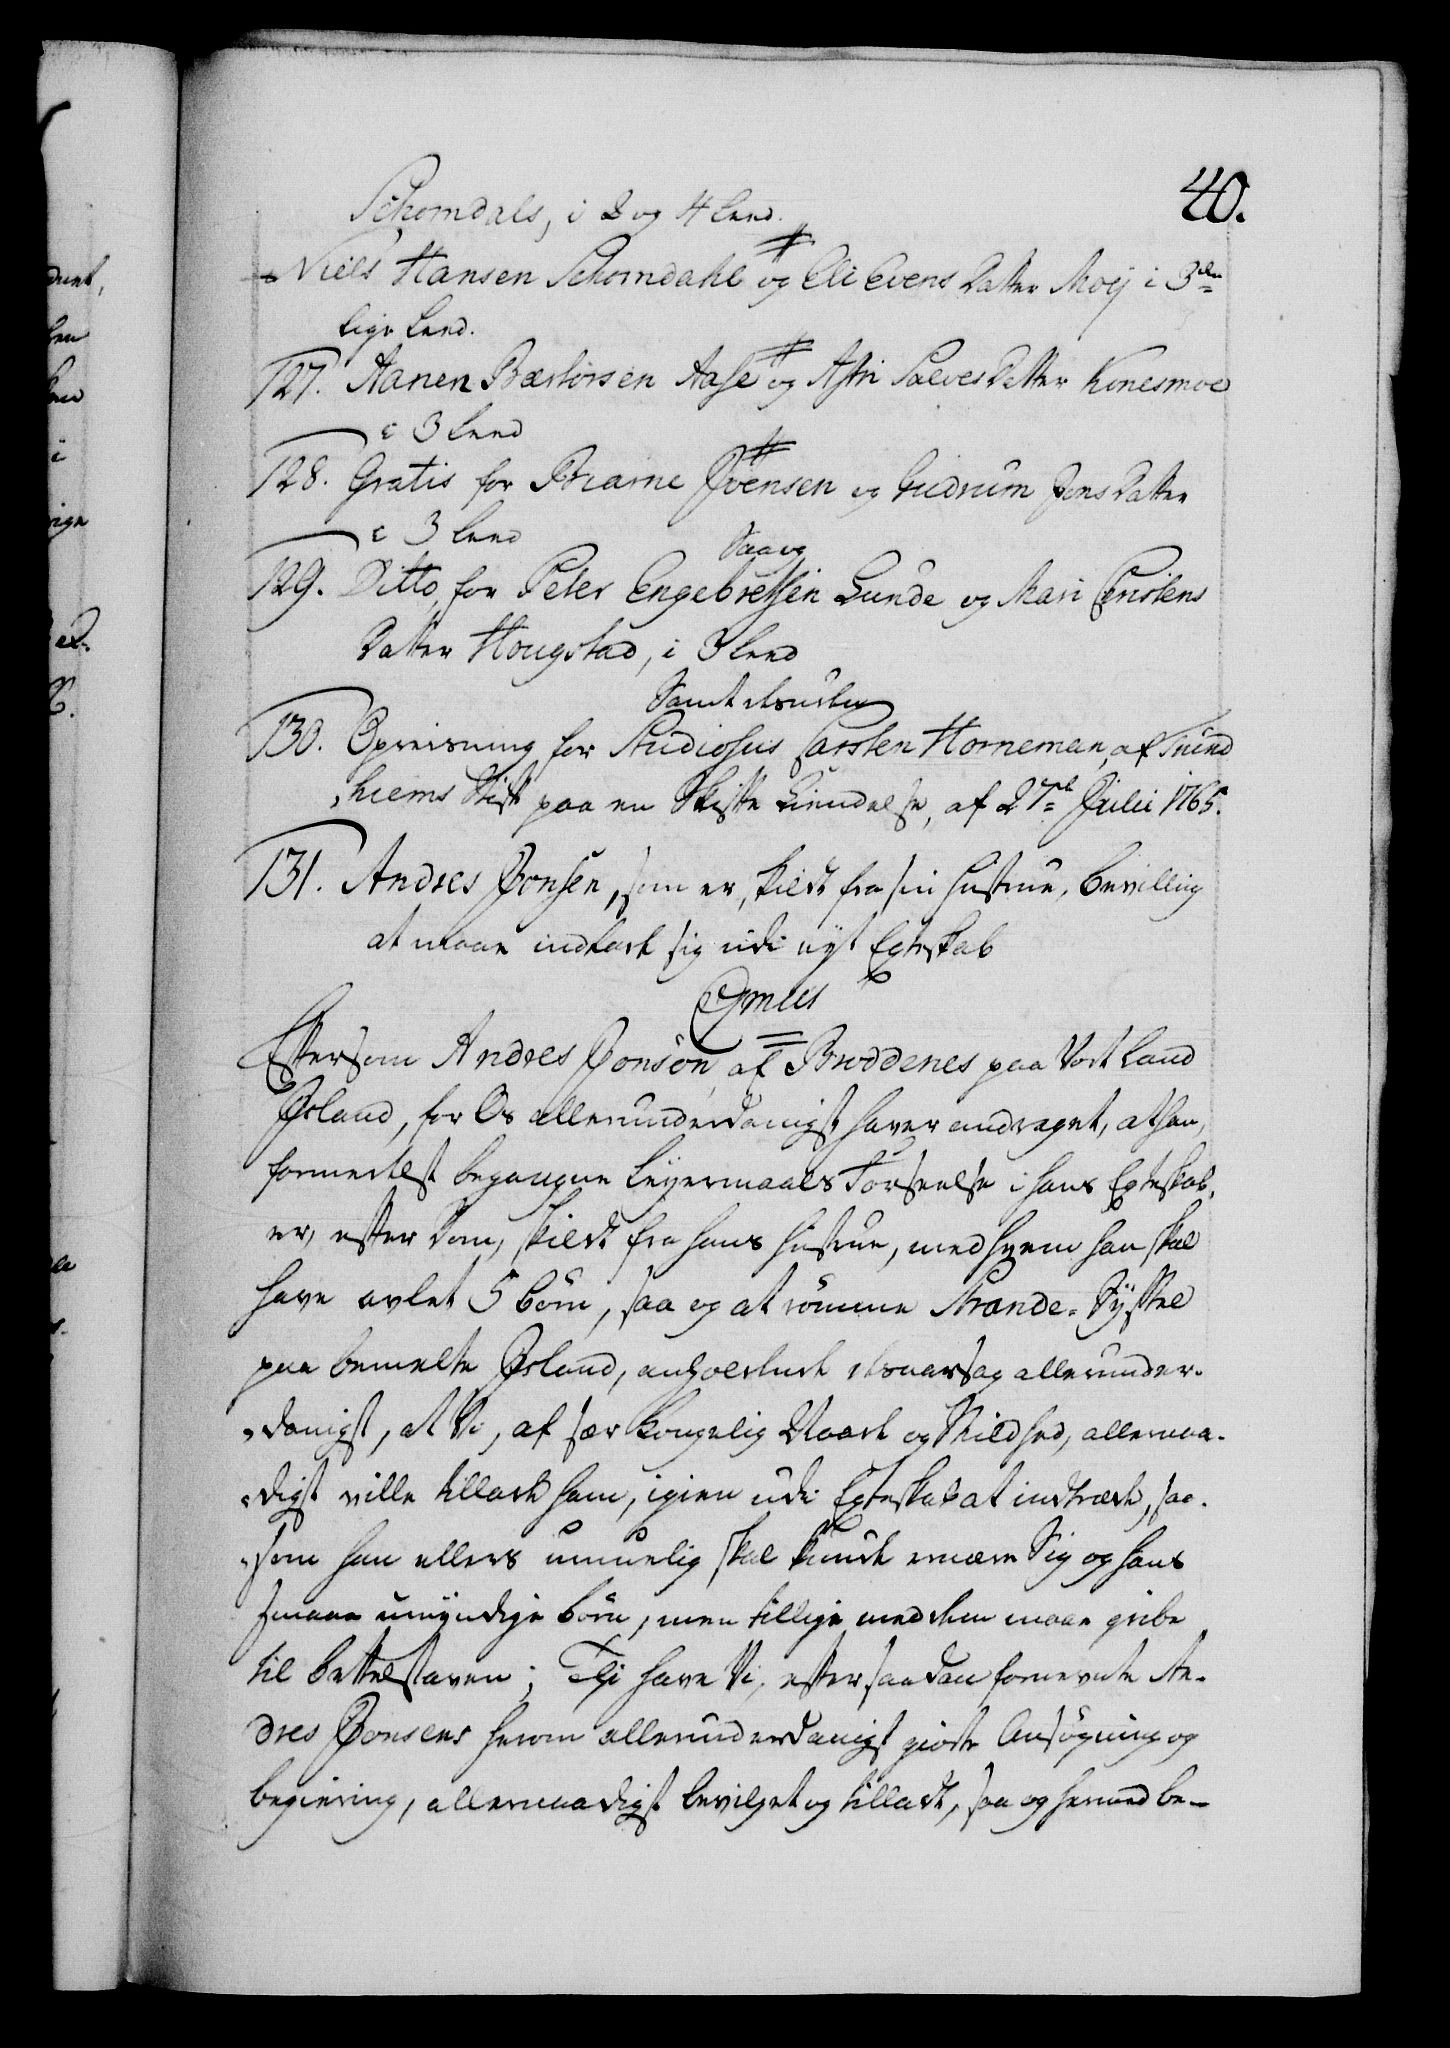 40.
Schomdals, i 2 og 4 Leed.
Niels Hansen Schomdahl og Eli Evens Datter Moej i 3die
lige Leed.
127. Aanen Bærtorsen Aase og Astri Salves Datter Konesmoe
i 3 Leed
128. Gratis for Biarne Ivensen og Gudrum Jens Datter
i 3 Leed
Saavog
129. Ditto, for Peter Engebretsen Lunde og Mari Cristens
Datter Hougstad, i 3 Leed
130. Opreisning for Studiosus Carsten Horneman, af Trund
hiems Stift paa en Skifte Kiendelse, af 27de Julii 1765.
131. Andres Jonsen, som er skildt fra sin Hustrue, bevillig
at maae indlade sig udi nyt Egteskab
Eftersom Andres Jonsön af Broddenes paa Vort Land
Island, for Os allerunderdanigst haver andraget, at han,
formedelst begangne Leyermaals Forseelse i hans Egteskab,
er, efter Dom, skildt fra hans Hustrue, med hvem han skal
have avlet 5 børn, saa og at römme Strande-Syssel
paa bemelte Island, anholdende desaarsag allerunder-
danigst, at Vi, af sær Kongelig Naade og Mildhed, allernaa-
digst ville tillade ham, igien udi Egteskab at indtræde, saa-
som han ellers umuelig skal kunde ernære Sig og hans
smaae umyndige børn, men tillige med dem maae gribe
til bettelstaven; Thi have Vi, efter saadan fornevnte An-
dres Jonsens herom allerunderdanigst giorte Ansøgning og
begiering, allernaadigst bevilget og tilladt, saa og hermed be-